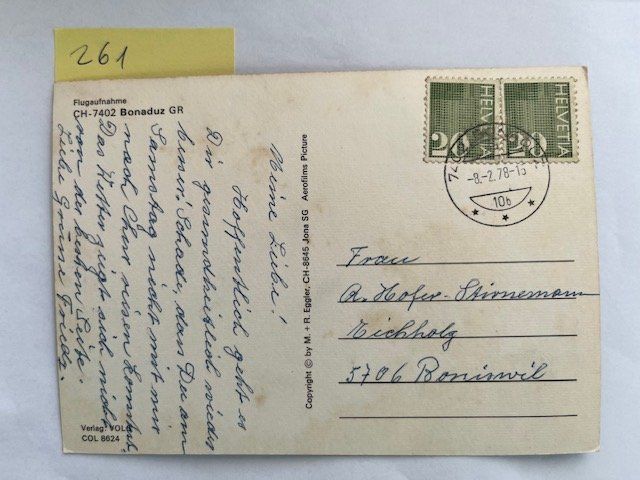 261
Flugaufnahme
CH-7402 Bonaduz GR
Meine Liebe!
Hoffentlich geht es
Dir gesundheitlich wieder
besser. Schade, dass Du am
Samstag nicht mit mir
nach Chur reisen konntest.
Das Wetter zeigt sich nicht
von der besten Seite.
Liebe Grüsse Frieda.
Verlag: VOLG
COL 8624
Copyright © by M. + R. Eggler, CH-8645 Jona SG Aerofilms Picture
HELVETIA
20
HELVETIA
20
-8.-2.78-15
10b
Frau
R. Hofer-Stirnemann
Eichholz
5706 Boniswil